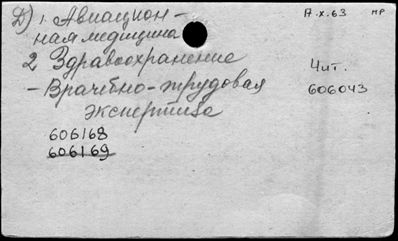 Д) 1. Авиацион-
ная медицина
2 Здравоохранение
- Врачебно-трудовая
экспертиза
606168
606169
17.X.63 МР
Чит.
606043